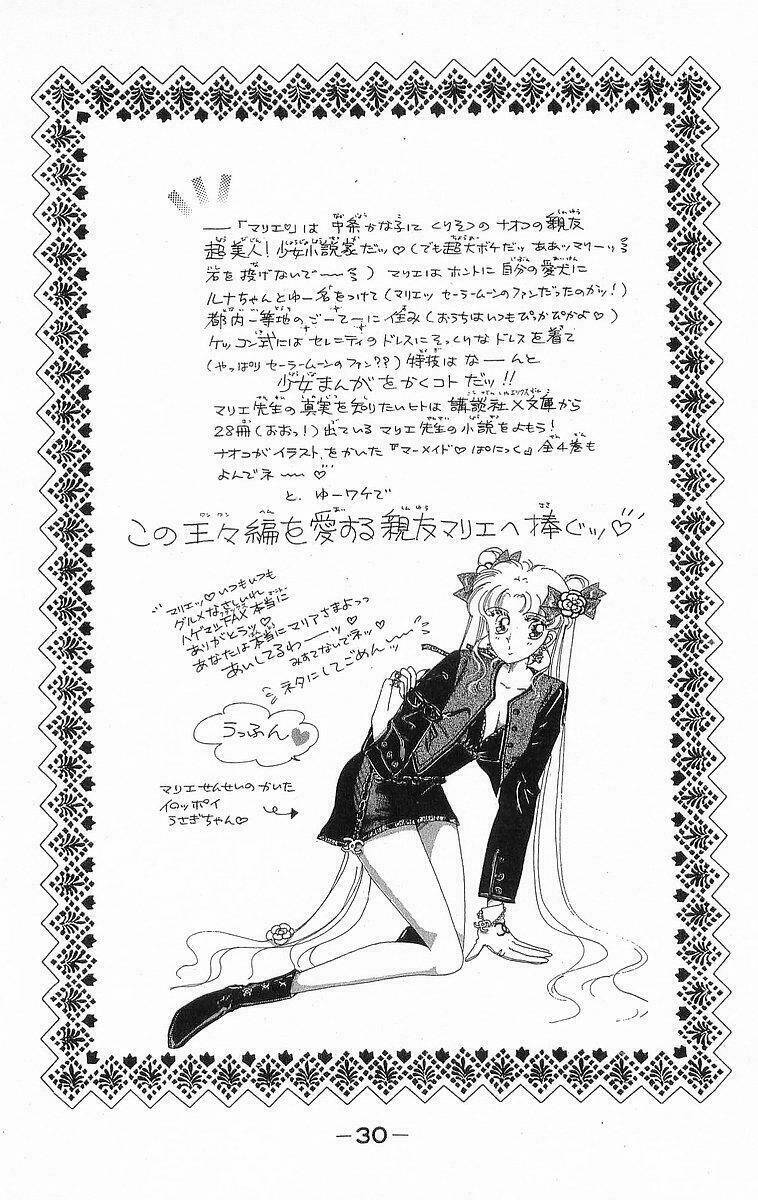 ―「マリエ」は 中条かな子に くりそつの ナオコの親友
超美人！少女小説家だッ♡（でも超大ボケだッ ああッマリーッ
岩を投げないで〜〜）マリエは ホントに 自分の愛犬に
ルナちゃんとゆー名をつけて（マリエッ セーラームーンのファンだったのかッ！）
都内一等地のごーてーに住み（おうちはいつもぴかぴかよ♡）
ケッコン式には セレニティのドレスにそっくりなドレスを着て
（やっぱり セーラームーンのファン??）特技は な――んと
少女まんがをかくコトだッ!!
マリエ先生の真実を知りたいヒトは 講談社X文庫から
28冊（おおっ！）出ている マリエ先生の小説をよもう！
ナオコがイラストをかいた『マーメイド♡ぱにっく』全4巻も
よんでネ〜〜♡
と、ゆーワケで
この王々編を愛する親友マリエへ捧ぐッ♡
マリエッ♡いつもいつも
グルメなさしいれ
ハゲマシFAX本当に
ありがとうッ♡
あなたは本当にマリアさまよっっ
あいしてるわーーッ♡
みすてないでネッ♡
ネタにしてごめんッ
うっふん♥
マリエせんせいの かいた
イロッポイ
うさぎちゃん♡
―30―